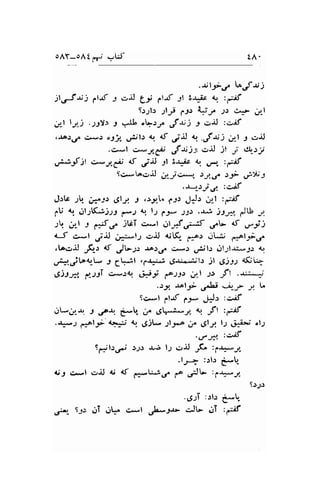 ٤٨٠ کتاب نهم ٥٨٤-٥٨٣
زندگی‌ها می‌خواند.
گفتم: به عقیدهٔ او کدام نوع لذت و کدام زندگی از
این حیث در مرتبهٔ دوم قرار دارد؟
گفت: لذت و زندگی مرد جاه طلب و دلاور. زیرا این
لذت و این زندگی به لذتی که به دانش پژوه دست می‌دهد،
نزدیک تر از لذت و زندگی نفع‌پرست است.
گفتم: پس به عقیدهٔ او لذتی که نفع‌پرست از کوشش
و تلاش خود می‌برد پست‌ترین لذت‌هاست؟
گفت: بی‌تردیـد.
گفتم: این دلیل دوم ما بود، و برای دومین بار عادل
بر ظالم پیروز شد. دور سوم را به رسم ورزشکاران به نام
زئوس که حامی کشتی‌گیران است آغاز می‌کنیم و این بار
می‌خواهیم نشان دهیم یگانه لذت راستین لذتی است کـه
به دوستداران دانش دست می‌دهد درحالی که دیگر لذت‌ها،
چنانکه روزی از دانشمندی شنیدم، اشباح و سایه‌هائی‌بیش
نیستند. اگر در این دور هم توفیق به‌دست آوریم پیروزی
ما بر حریف قطعی خواهد بود.
گفت: دلیل سوم کدام است؟
گفتم: اگر به پرسشهای من پاسخ بدهی و بدین‌سان
راه تحقیق را برای من هموار سازی به نتیجه خواهیم رسید.
گفت: بپرس.
پرسیدم: مگر لذت را ضد درد نمی‌دانیم؟
پاسخ داد: چـرا.
پرسیدم: حالتی هم می‌شناسیم که نه لذت است ونه
درد؟
پاسخ داد: آری.
گفتم: آن حالت حدوسطی است میان آن دو؟ یعنی